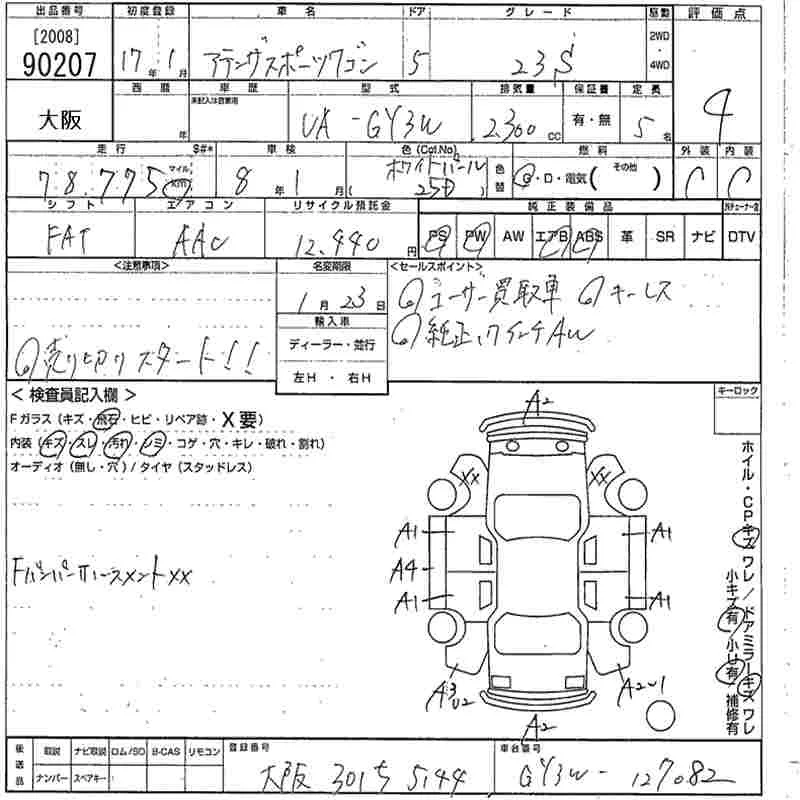 出品番号 初度登録 車名 ドア グレード 駆動 評価点
[2008]
90207 17年 1月 アテンザスポーツワゴン 5 23S 2WD・4WD 4
大阪
西暦 年 車歴 未記入は自家用 型式 UA-GY3W 排気量 2300cc 保証書 有・無 定員 5名
走行 $#* 車検 色(Col.No) 燃料 外装 内装
78,775 マイル km 8年 1月 ホワイトパール (25D) 色替 G・D・電気( その他 ) C C
シフト エアコン リサイクル預託金 純正装備品
FAT AAC 12,440円 PS PW AW エアB ABS 革 SR ナビ DTV
<注意事項> 名変期限 <セールスポイント>
1月23日 ◎ユーザー買取車 ◎キーレス
◎純正17インチAW
輸入車
ディーラー・並行
左H・右H
◎売り切りスタート!!
<検査員記入欄> キーロック
Fガラス(キズ・飛石・ヒビ・リペア跡・X要)
内装(キズ・スレ・汚れ・シミ・コゲ・穴・キレ・破れ・割れ)
オーディオ(無し・穴)/タイヤ(スタッドレス)
FバンパーホースメントXX
A2
XX XX
A1 A1
A4
A1 A1
A3 U2 A2U1
A2
ホイル・CPキズ ワレ/ドアミラーキズ ワレ
小キズ有/小U有/補修有
後送品 取説 ナビ取説 ロム/SD B-CAS リモコン 登録番号 車台番号
ナンバー スペアキー 大阪 301ち 5144 GY3W-127082